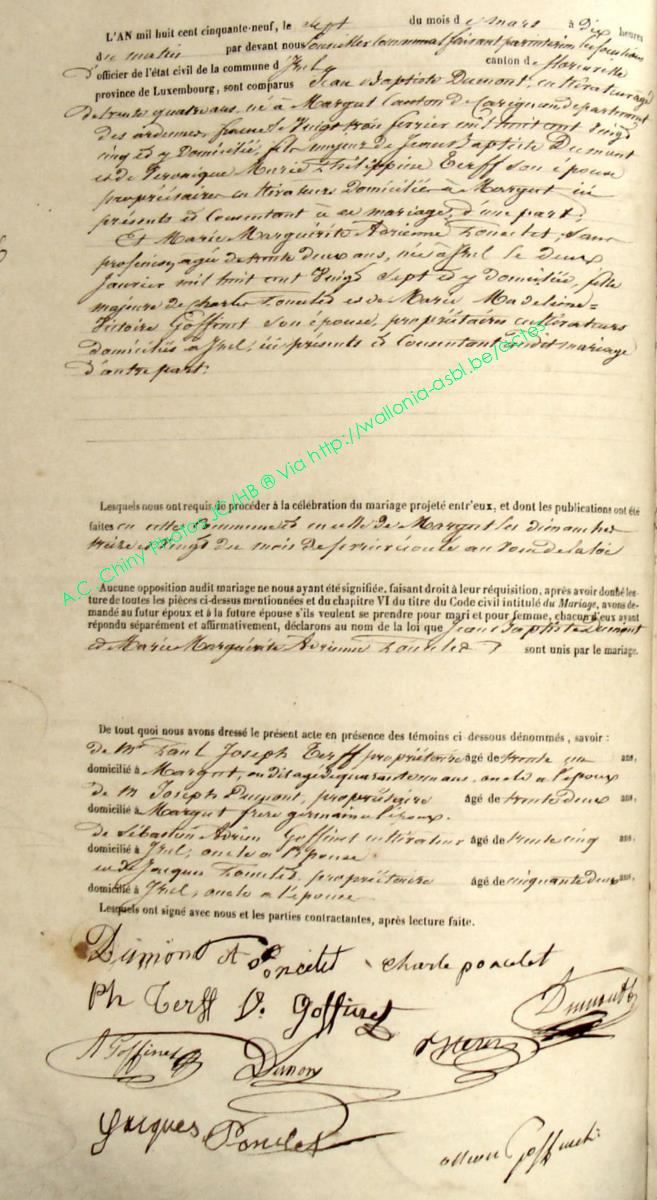 L'AN mil huit cent cinquante-neuf, le sept du mois de mars à Dix heures
du matin par devant nous Conseiller Communal faisant par interim les fonctions
d'officier de l'état civil de la commune d'Izel canton de florenville
province de Luxembourg, sont comparus Jean Baptiste Dumont, cultivateur agé
de trente quatre ans, né à Margut Canton de Carignan departement
des ardennes france le Vingt trois fevrier mil huit cent Vingt
cinq et y Domicilié, fils majeur de Jean Baptiste Dumont
et de Veronique Marie Philippine Terff son épouse
propriétaires cultivateurs domiciliés à Margut ici
présents et Consentant à ce mariage, d'une part;
Et Marie Marguérite Adrienne Poncelet, sans
profession, agée de trente deux ans, née à Izel le deux
Janvier mil huit cent Vingt Sept et y domiciliée, fille
majeure de Charles Poncelet et de Marie Madeleine=
Victoire Goffinet son épouse, propriétaires cultivateurs
domiciliés à Izel, ici présents et Consentant audit mariage
d'autre part.
A.C. Chiny Photos JC/HB ® Via http://wallonia-asbl.be/actes
Lesquels nous ont requis de procéder à la célébration du mariage projeté entr'eux, et dont les publications ont été
faites en cette Commune et en celle de Margut les dimanches
treize et Vingt du mois de fevrier écoulé au nom de la loi
Aucune opposition audit mariage ne nous ayant été signifiée, faisant droit à leur réquisition, après avoir donné lec-
ture de toutes les pièces ci-dessus mentionnées et du chapitre VI du titre du Code civil intitulé du Mariage, avons de-
mandé au futur époux et à la future épouse s'ils veulent se prendre pour mari et pour femme, chacun d'eux ayant
répondu séparément et affirmativement, déclarons au nom de la loi que Jean Baptiste Dumont
et Marie Marguérite Adrienne Poncelet sont unis par le mariage.
De tout quoi nous avons dressé le présent acte en présence des témoins ci-dessous dénommés, savoir :
de Mr Paul Joseph Terff propriétaire âgé de trente un ans,
domicilié à Margut, ou dit agé de quarante un ans, oncle a l'époux
de M Joseph Dumont, propriétaire âgé de trente deux ans,
domicilié à Margut frere germain a l'époux.
de Sébastien Adrien Goffinet cultivateur âgé de trente cinq ans,
domicilié à Izel, oncle a l'épouse
et de Jacques Poncelet propriétaire âgé de cinquante deux ans,
domicilié à Izel, oncle a l'épouse
Lesquels ont signé avec nous et les parties contractantes, après lecture faite.
Dumont A Poncelet charle poncelet
Ph Terff V. Goffinet Dumont
A Goffinet Dumont
Jacques Poncelet Goffinet